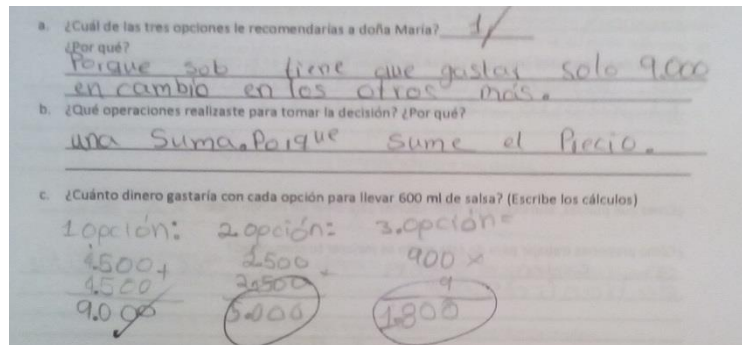 a. ¿Cuál de las tres opciones le recomendarías a doña María? 1
¿Por qué?
Porque solo tiene que gastar solo 9.000
en cambio en los otros más.
b. ¿Qué operaciones realizaste para tomar la decisión? ¿Por qué?
una Suma. Porque sume el Precio.
c. ¿Cuánto dinero gastaría con cada opción para llevar 600 ml de salsa? (Escribe los cálculos)
1 opción: 2. opción: 3. opción=
4.500+ 2.500+ 900 x
4.500 2.500 9
9.000 5.000 1.800